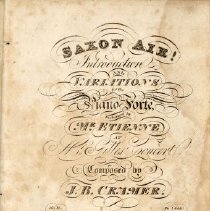 SAXON AIR!
Introduction
AND
VARIATIONS
for the
Piano Forte,
Mr. ETIENNE
AT
Concert
Composed by
J. B. CRAMER.